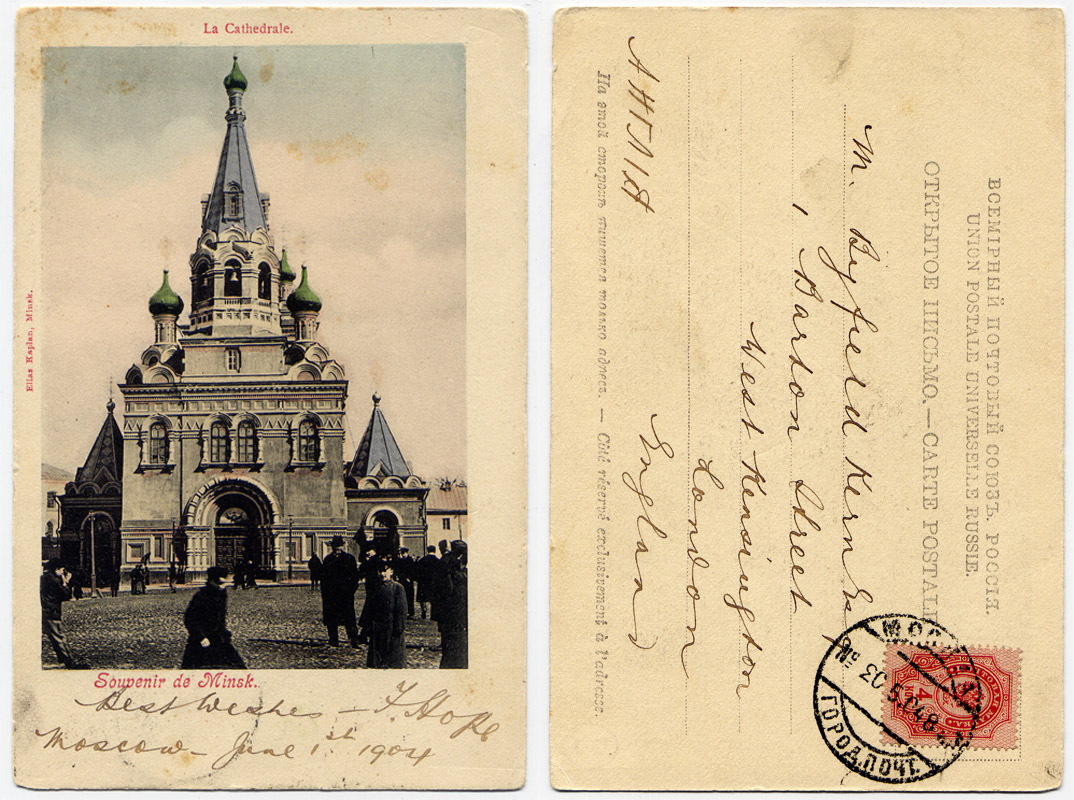 La Cathedrale.
Elias Kaplan, Minsk.
Souvenir de Minsk.
Best Wishes — F. Hope
Moscow — June 1st 1904
ВСЕМІРНЫЙ ПОЧТОВЫЙ СОЮЗЪ. РОССІЯ.
UNION POSTALE UNIVERSELLE RUSSIE.
ОТКРЫТОЕ ПИСЬМО.—CARTE POSTALE
M. Byfield Kern Esq
1 Barton Street
West Kensington
London
England
АНГЛІЯ
На этой сторонѣ пишется только адресъ. — Côté réservé exclusivement à l'adresse.
МОСКВА
20.5.04
ГОРОД.ПОЧТ.
4